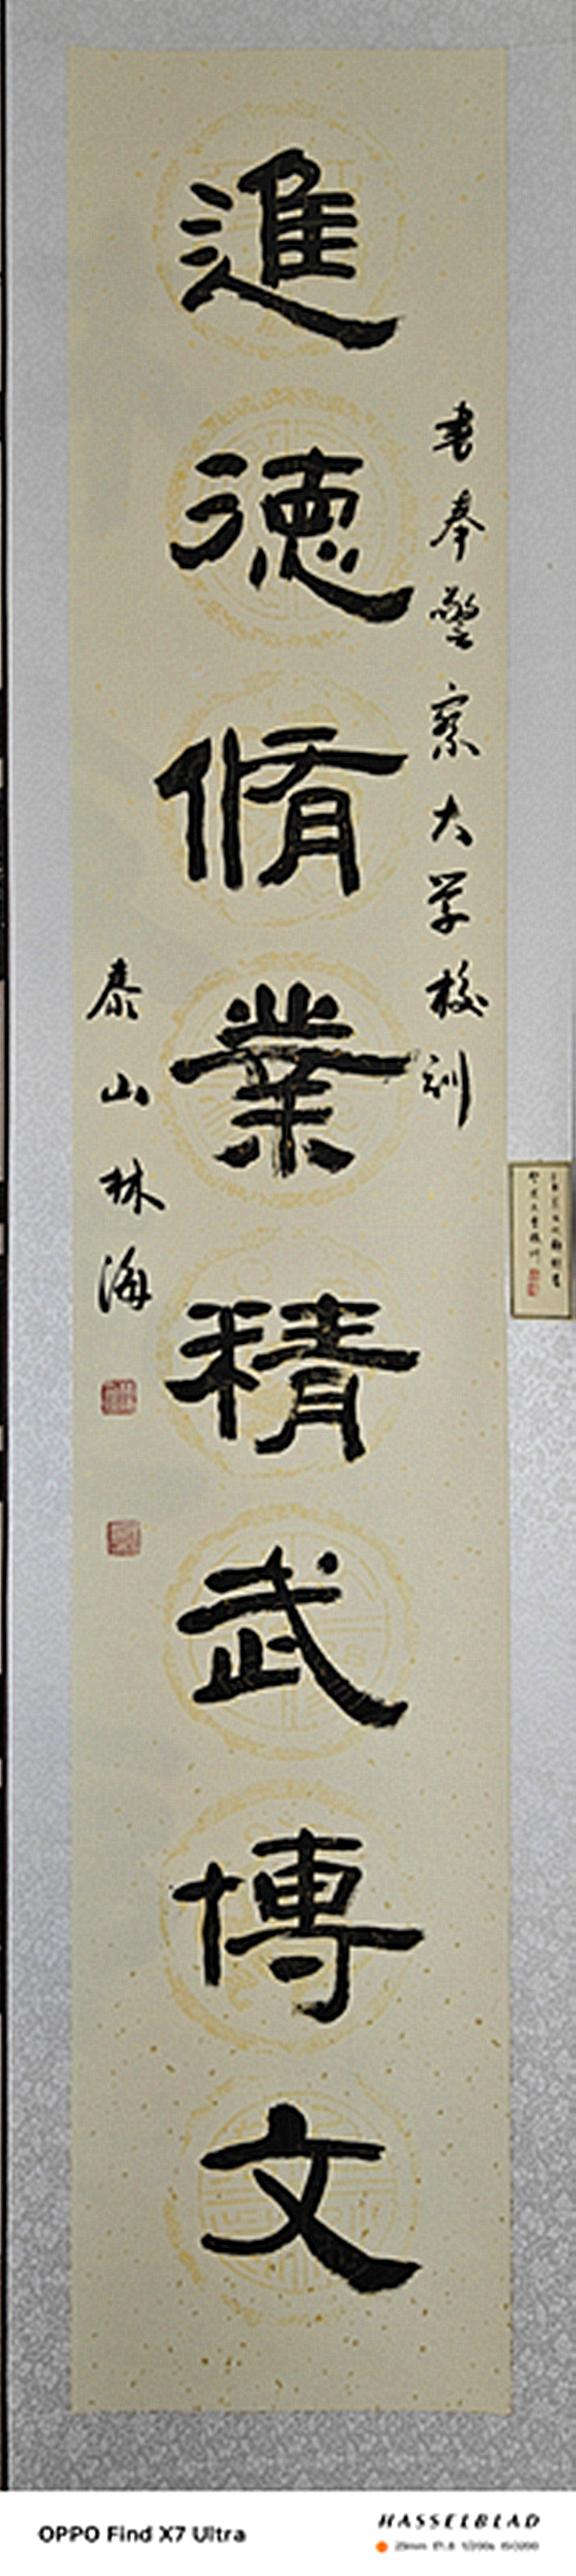 書奉警察大学校训
進德脩業精武博文
泰山林海
OPPO Find X7 Ultra
HASSELBLAD
23mm f/1.8 1/200s ISO200